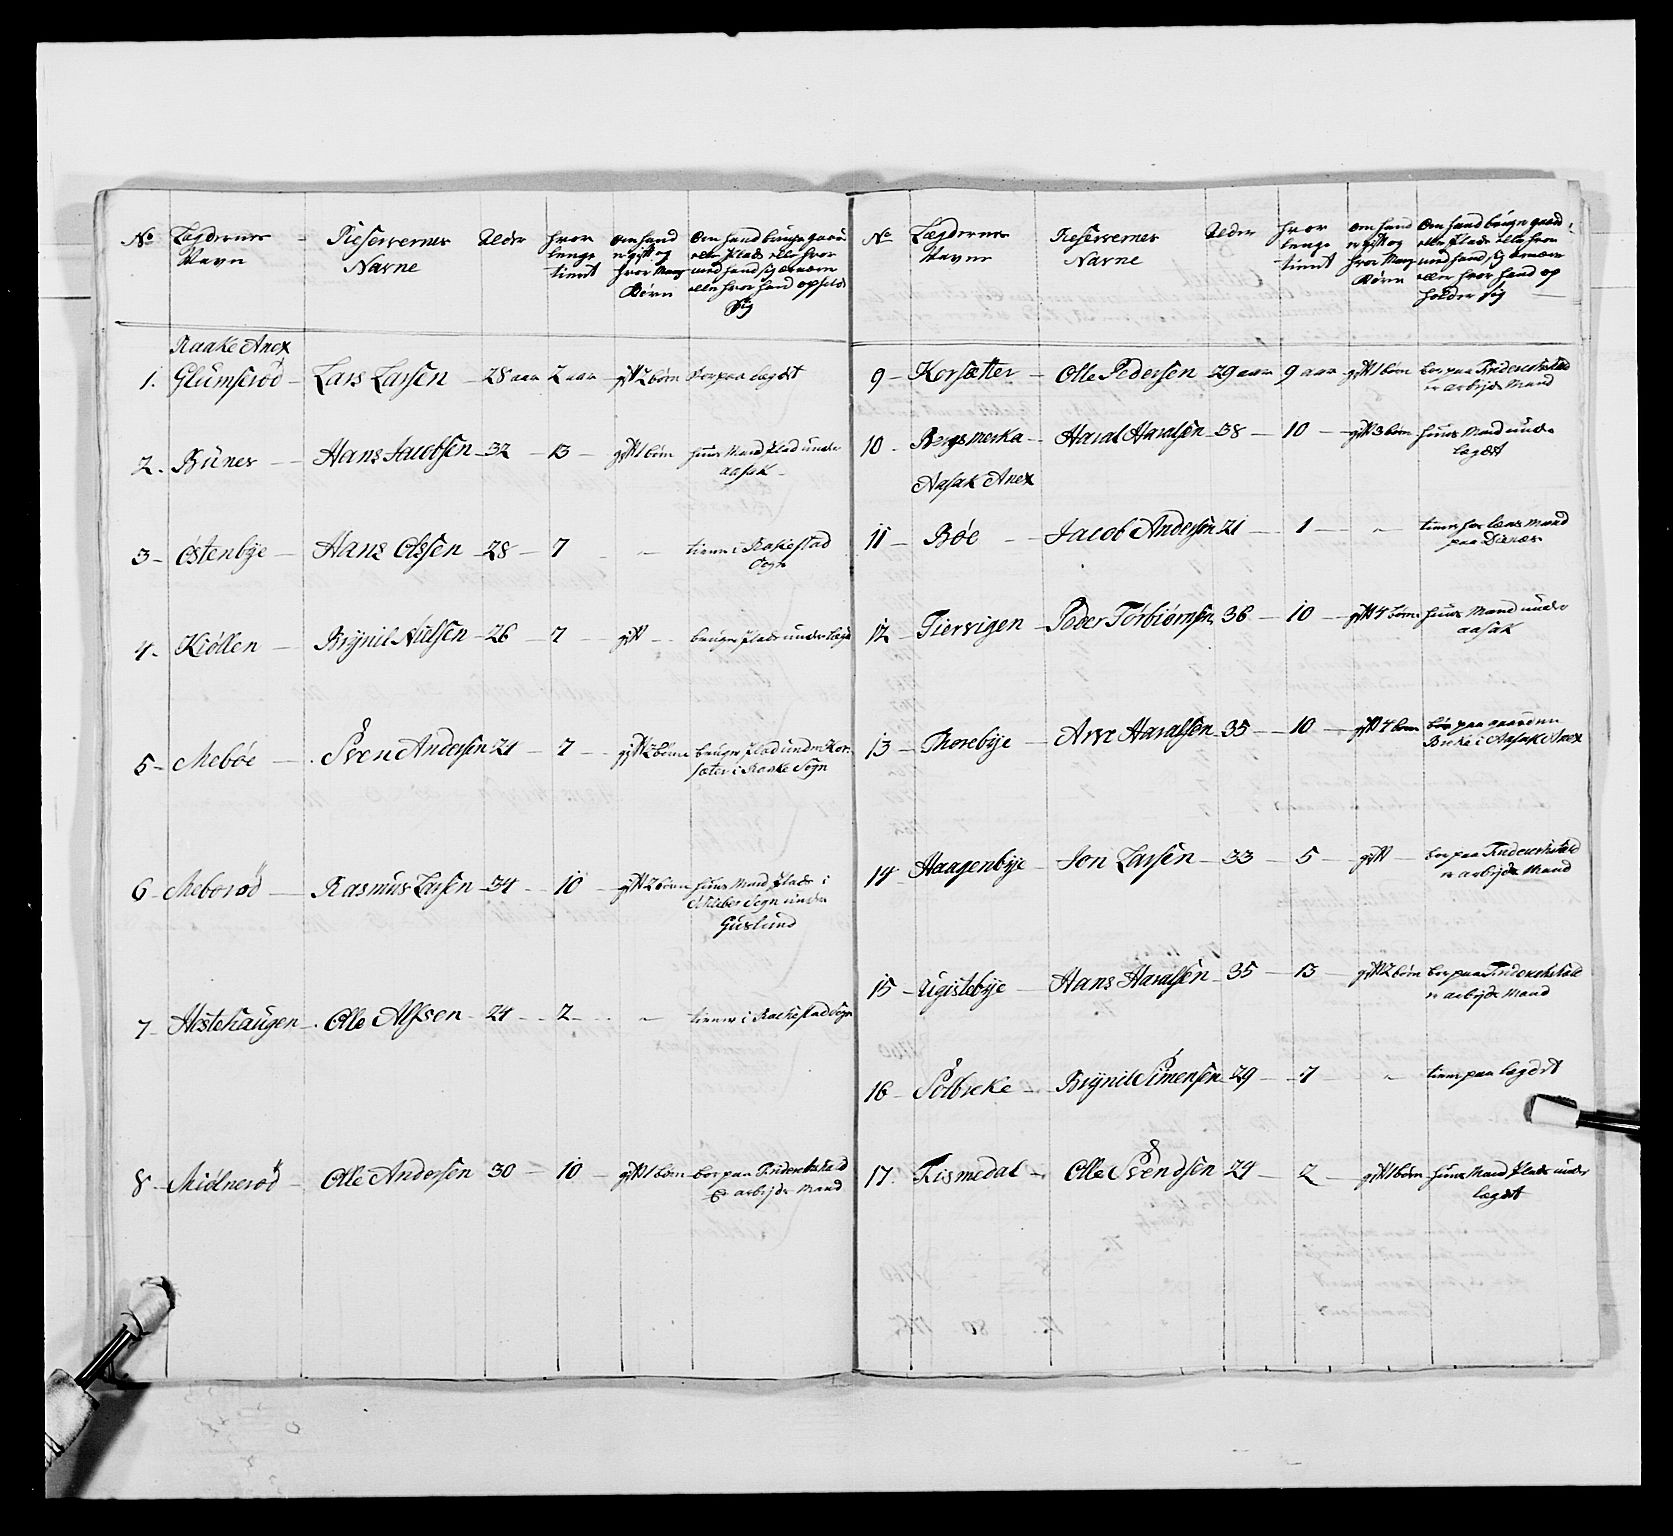 No
Lægdernes Navn
Reservernes Navne
Alder
hvor lenge tient
om hand er gift og hvor Mange Børn
Om hand bruger gaard eller Plads eller hvor med hand sig ernærer eller hvor hand opholder sig
Raake Anex
1. Glumserød – Lars Larsen – 28 aar 2 aar – gift 2 børn boer paa Legdet
2. Buner – Hans Jacobsen – 32 – 13 – gift 1 børn huus Mand Plads under
aasak
3 – Østenbye – Hans Olssen – 28 – 7 – tiener i Rakestad
Sogn
4 – Kiøllen – Brynil Nielsen – 26 – 7 – gift – bruger Plads under legd
5 – Mebøe – Sven Andersen 24 – 7 – gift 2 børn bruger Plads under Kor-
sæter i Raake Sogn
6 – Meborød – Rasmus Larsen – 34 – 10 – gift 2 børn huus Mand Plads i
Schieber Sogn under
Guslund
7 – Hestehaugen – Olle Alfsen – 24 – 2 – tiener i Rachestad Sogn
8 – Miølnerød – Olle Andersen 30 – 10 – gift 1 børn – boer paa Friderichstad
Er arbejds Mand
No
Lægdernes Navne
Reservernes Navne
Alder
hvor lenge tient
om hand er gift og hvor Mange Børn
Om hand bruger gaard eller Plads eller hvor med hand sig ernærer eller hvor hand op holder sig
9 – Korsætter – Olle Pedersen – 29 aar – 9 aar – gift 1 børn boer paa Friderichstad
er arbejds Mand
10 – Bergs Merka – Haral Haralsen – 38 – 10 – gift 3 børn huus Mand under
legdet
Aasak Anex
11 – Bøe – Jacob Andersen 21 – 1 – tiener hos lens Mand
paa
12 – Tiervigen – Peder Torbiørnsen 36 – 10 – gift 4 børn huus Mand under
aasak
13 – Thorebye – Arve Haralsen 35 – 10 – gift 4 børn boer paa gaarden
Breke i Aasak Anex
14 – Haagenbye – Jon Larsen – 33 – 5 – gift – boer paa Friderichstad
er arbejds Mand
15 – Ugistebye – Hans Haralsen – 35 – 13 – gift 2 børn boer paa Friderichstad
er arbejds Mand
16 – Solbreke – Brynil Simensen 29 – 7 – tiener paa legdet
17. Tismedal – Olle Svendsen 24 – 2 – gift 1 børn – huus Mand Plads under
legdet